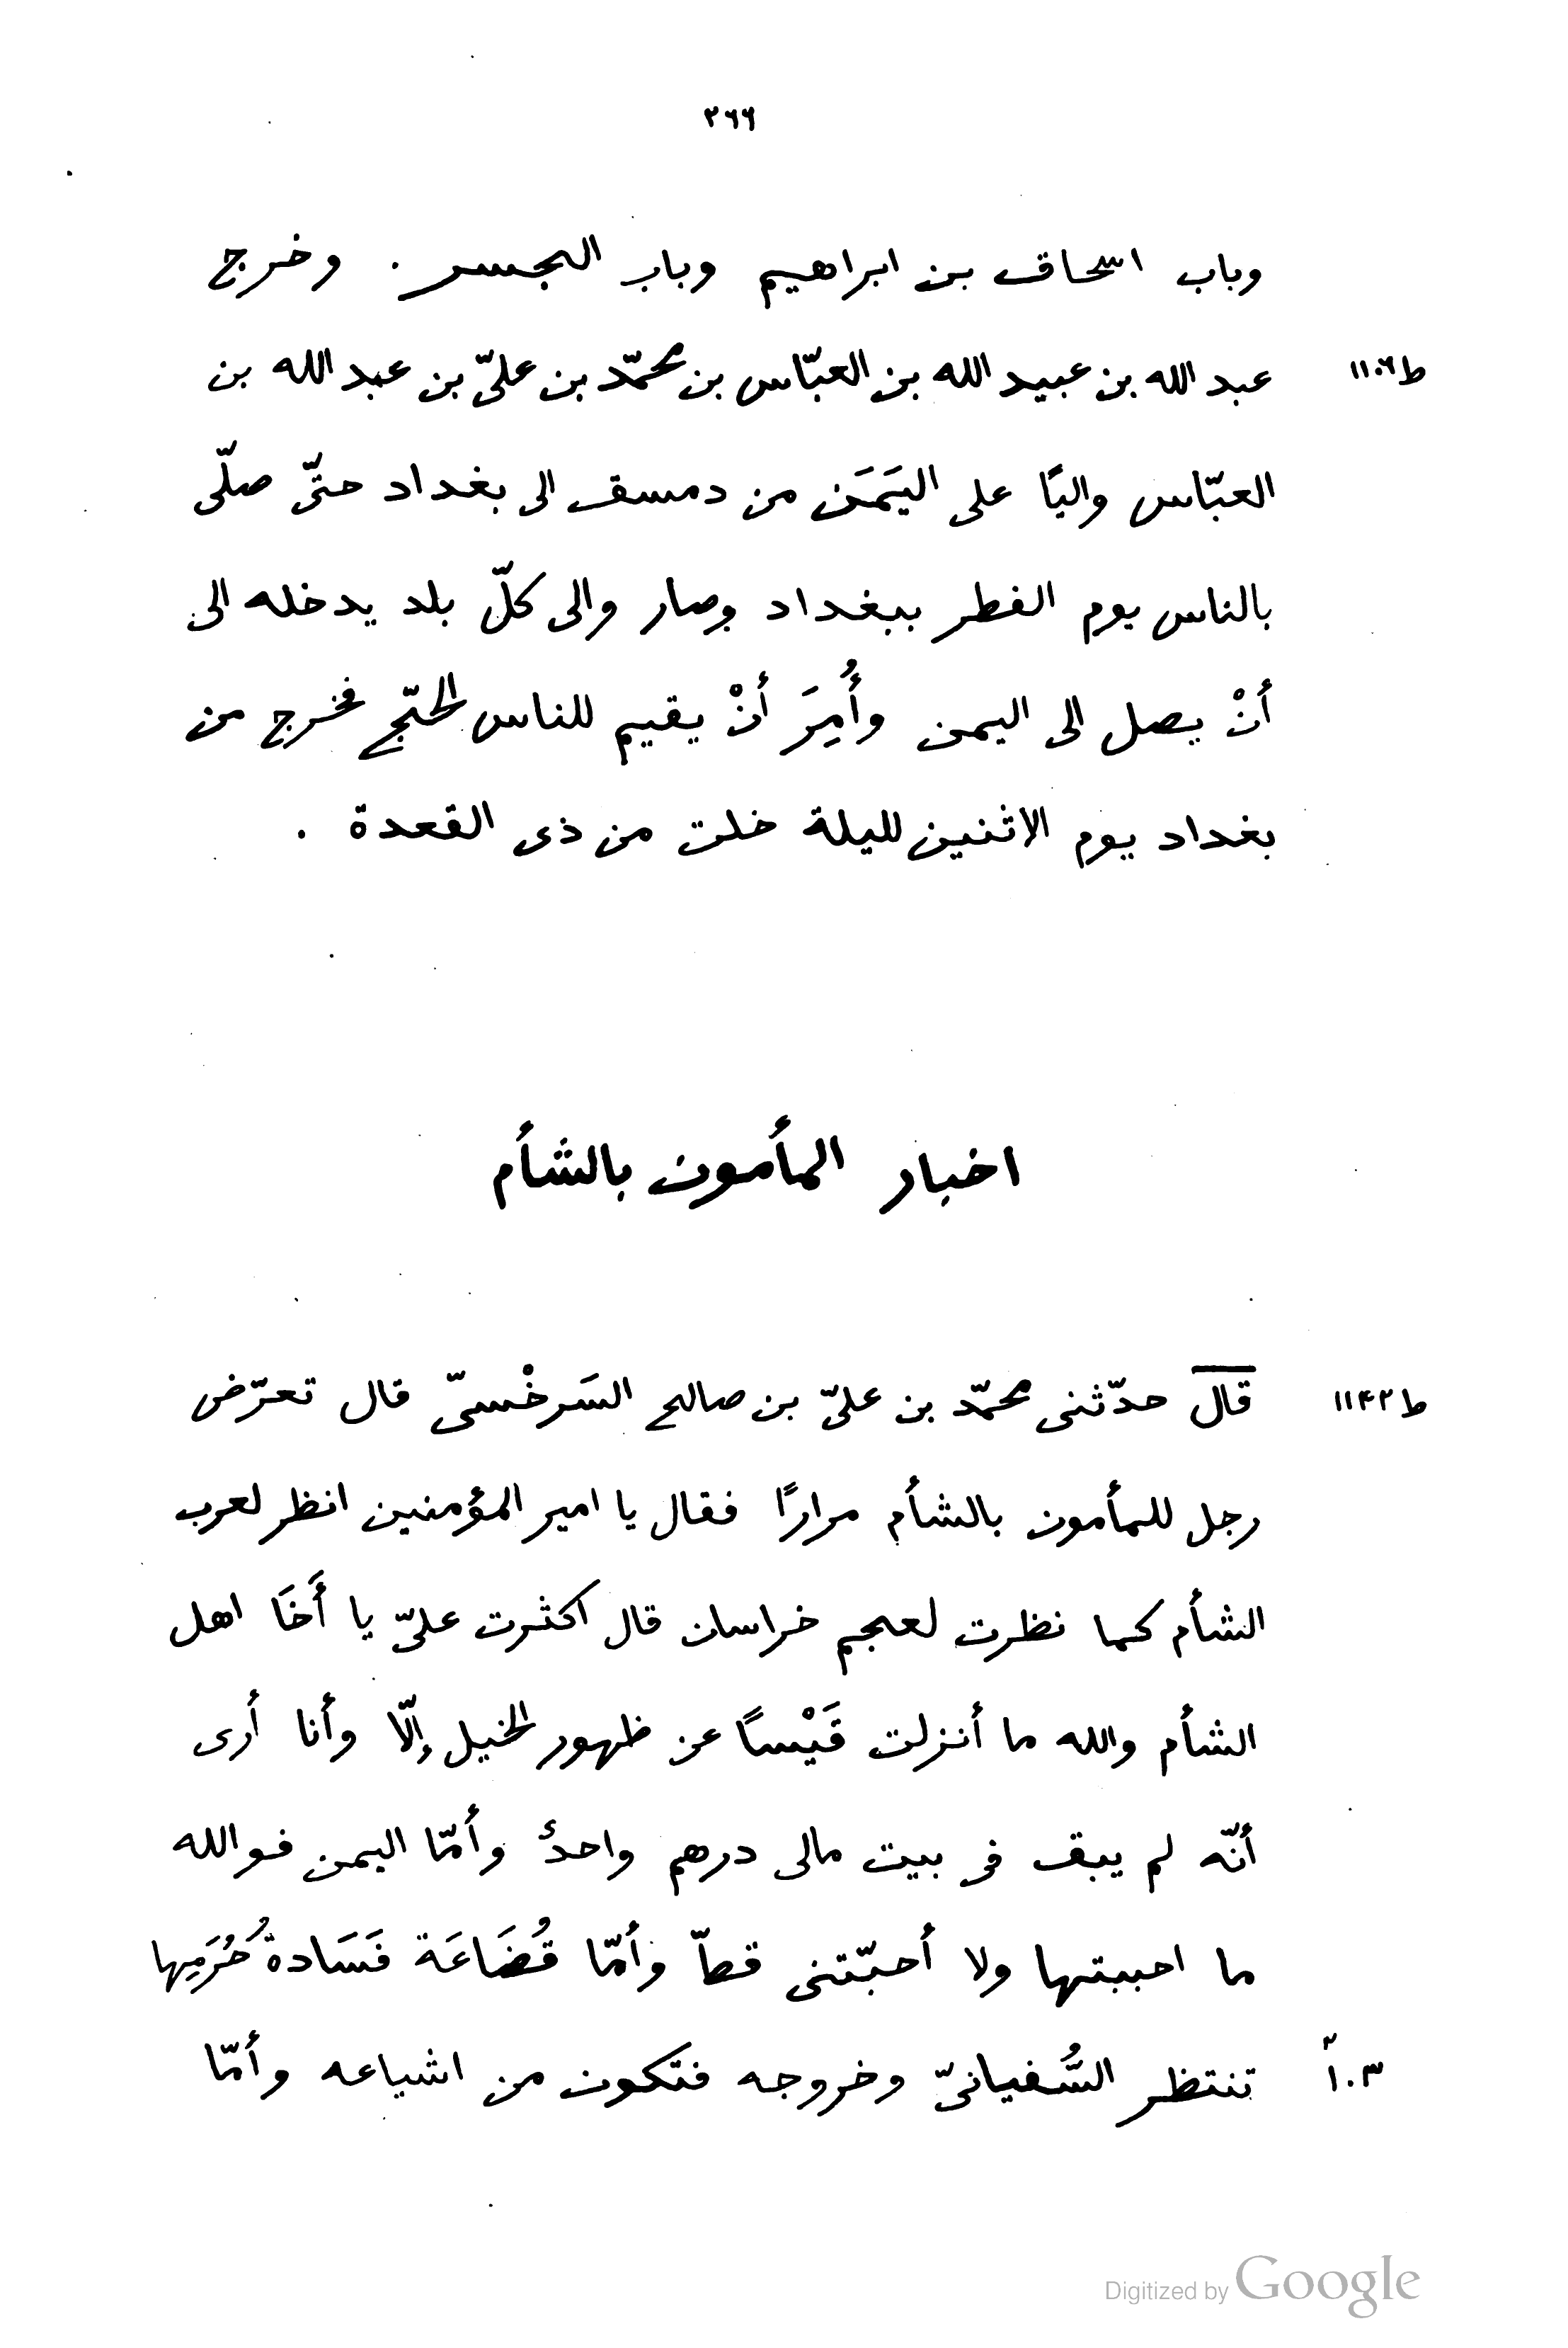 ٢٦٦
وباب اسحاق بن ابراهيم وباب الجسر . وخرج
ط١١٠٦
عبد الله بن عبيد الله بن العبّاس بن محمّد بن علىّ بن عبد الله بن
العبّاس واليًا على اليَمَن من دمسق الى بغداد حتّى صلّى
بالناس يوم الفطر ببغداد وصار والى كلّ بلد يدخله الى
أنْ يصل الى اليمن وأُمِرَ أنْ يقيم للناس الحجّ فخرج من
بغداد يوم الاثنين لليلة خلت من ذى القعدة .
اخبار المأمون بالشأم
ط١١٤٢
قال حدّثنى محمّد بن علىّ بن صالح السَرخْسىّ قال تعرّض
رجل للمأمون بالشأم مرارًا فقال يا امير المؤمنين انظر لعرب
الشأم كما نظرت لعجم خراسان قال اكثرت علىّ يا أَخَا اهل
الشأم والله ما أنزلت قَيْسًا عن ظهور الخيل إلّا وأنا أرى
أنّه لم يبق فى بيت مالى درهم واحدٌ وأمّا اليمن فوالله
ما احببتها ولا أحبّتنى قطّ وأمّا قُضَاعَة فَسَادةُ حُرَمِها
١٠٣أ
تنتظر السُّفيانىّ وخروجه فتكون من اشياعه وأمّا
Digitized by Google